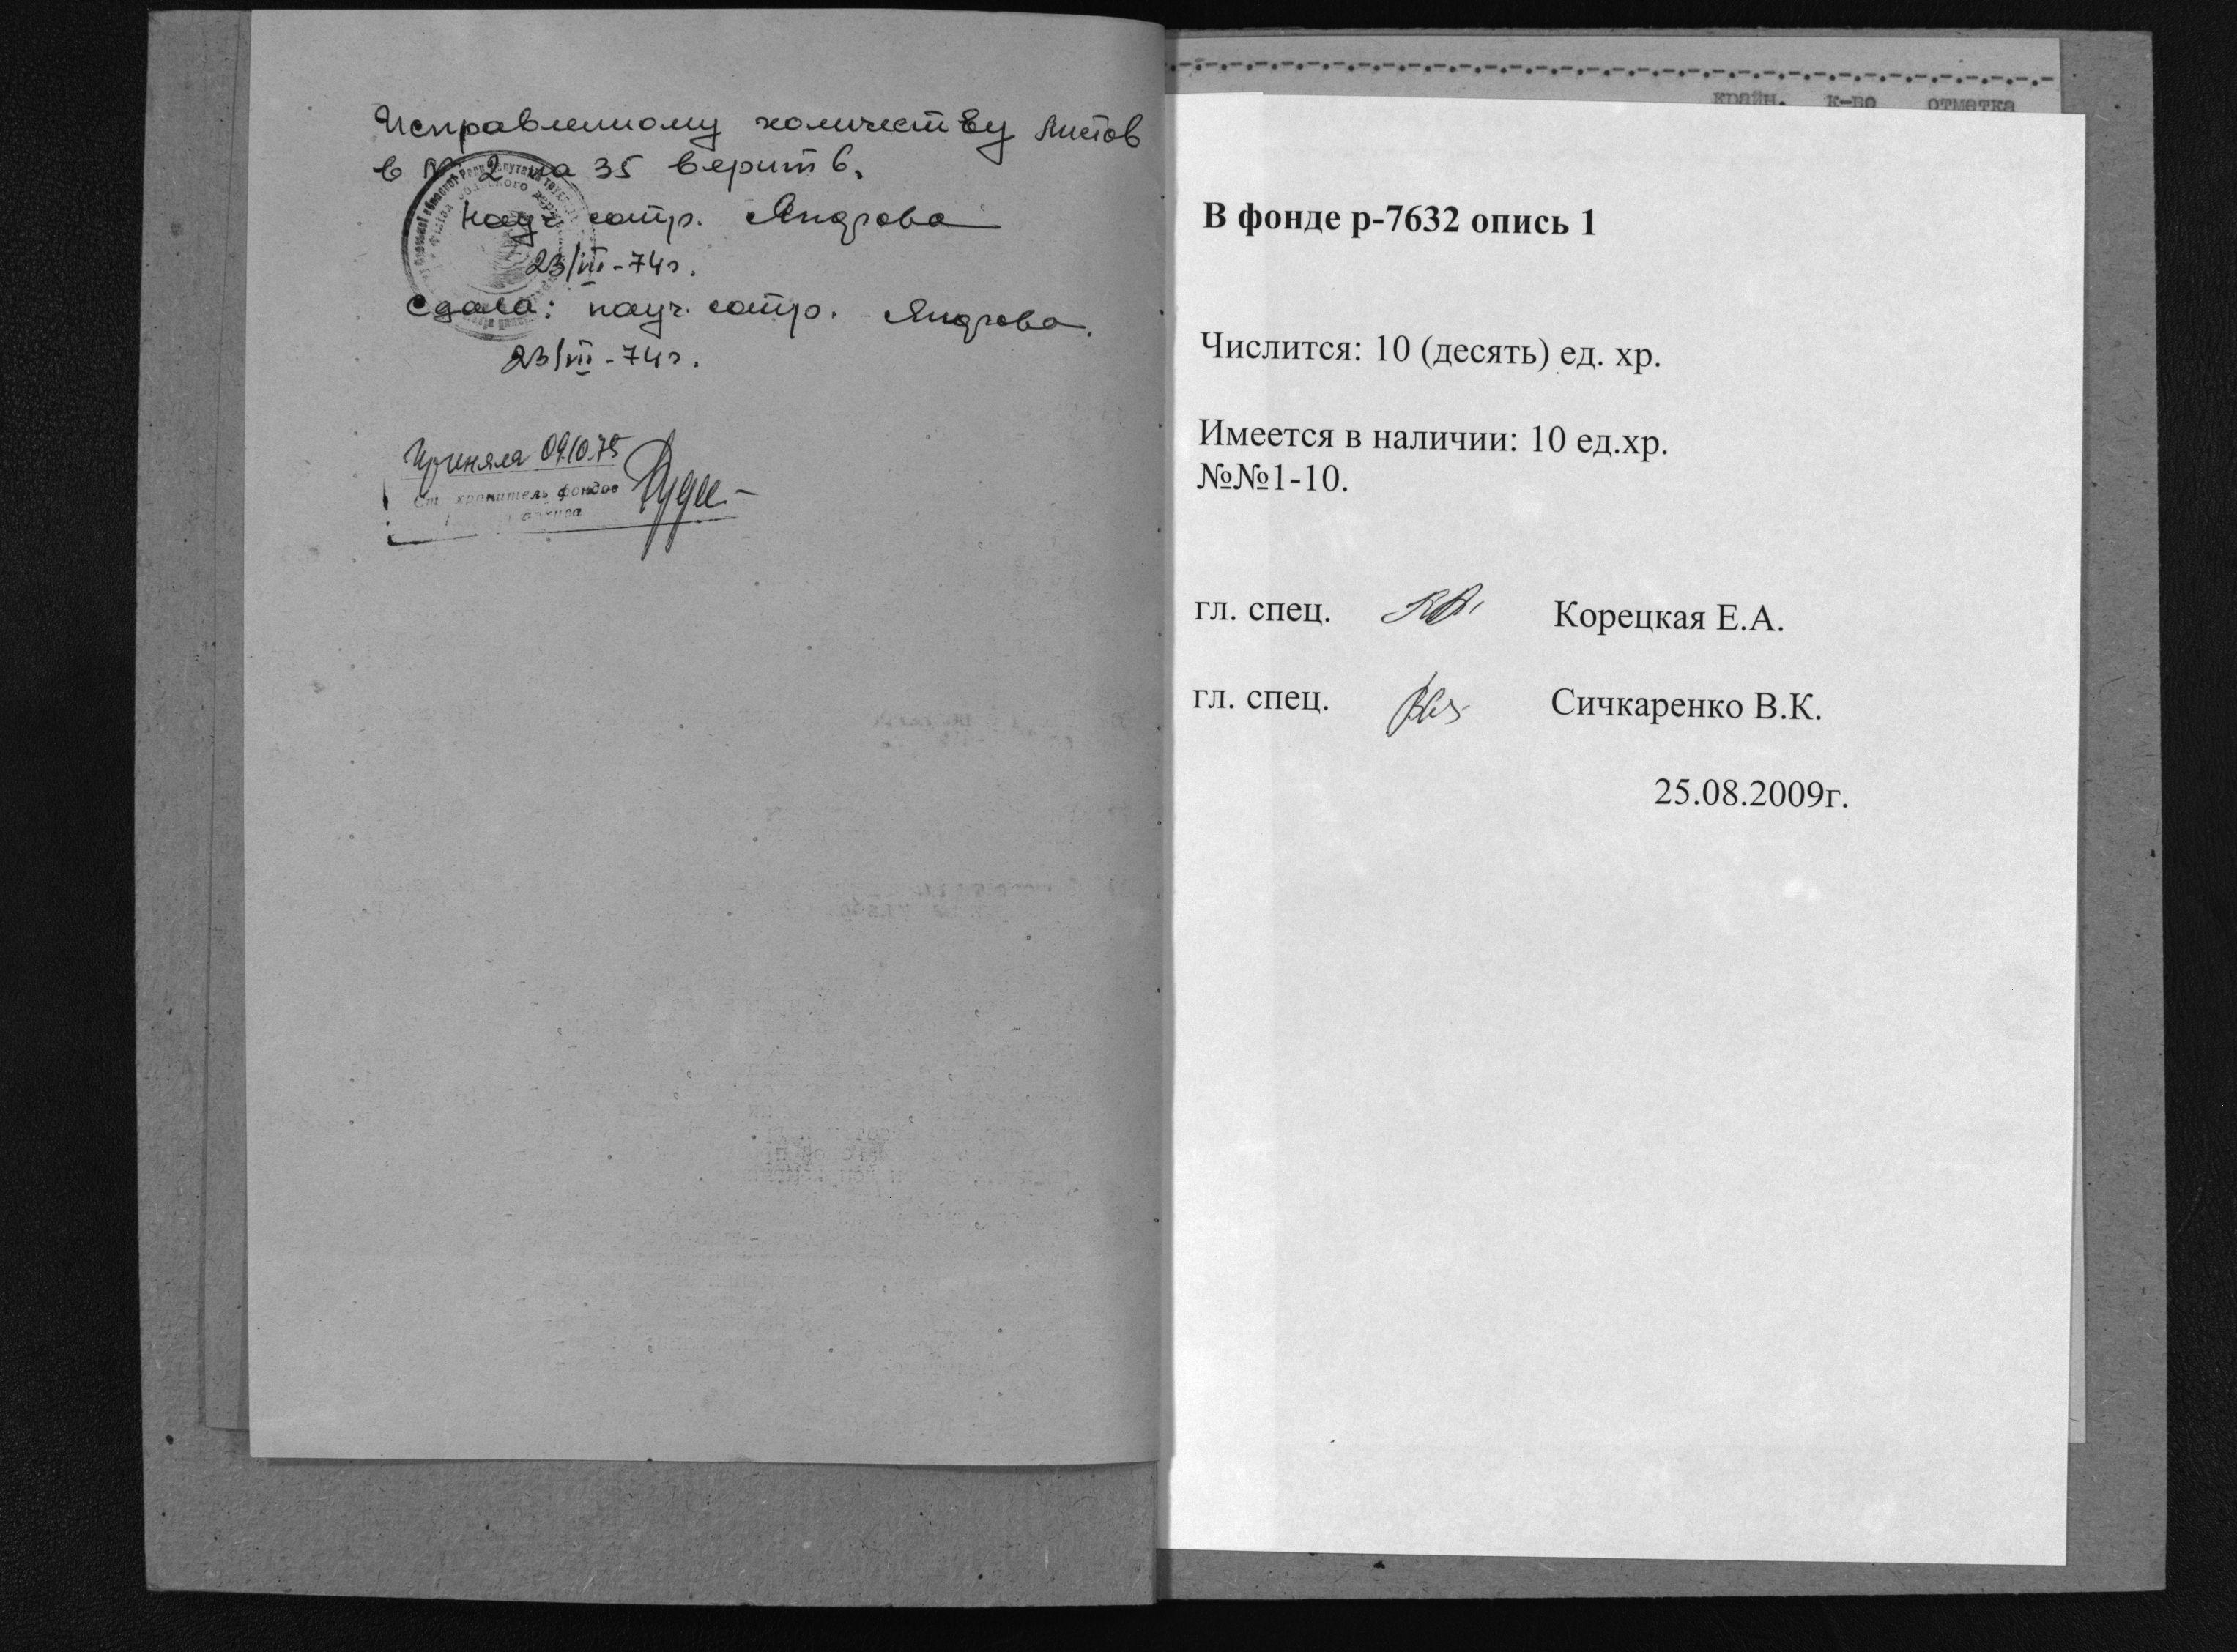 Исправленному количеству листов
в № 2 на 35 верить.
Науч. сотр. Яндрова
23/VII-74г.
Сдала: науч. сотр. Яндрова.
23/VII-74г.
Приняла 09.10.75
Ст. хранитель фондов
архива
крайн. к-во отметка
В фонде р-7632 опись 1
Числится: 10 (десять) ед. хр.
Имеется в наличии: 10 ед.хр.
№№1-10.
гл. спец. Корецкая Е.А.
гл. спец. Сичкаренко В.К.
25.08.2009г.